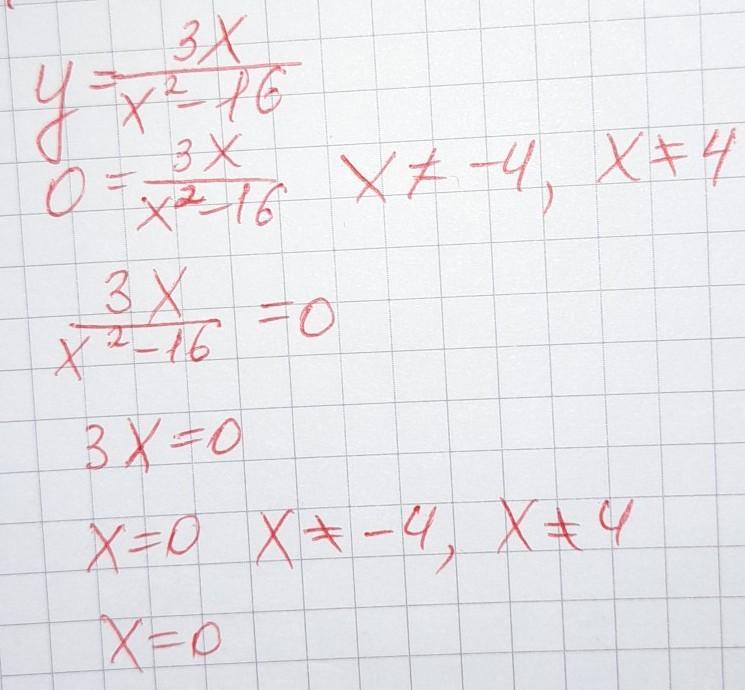 y = 3x / x² - 16
0 = 3x / x² - 16   x ≠ -4, x ≠ 4
3x / x² - 16 = 0
3x = 0
x = 0   x ≠ -4, x ≠ 4
x = 0